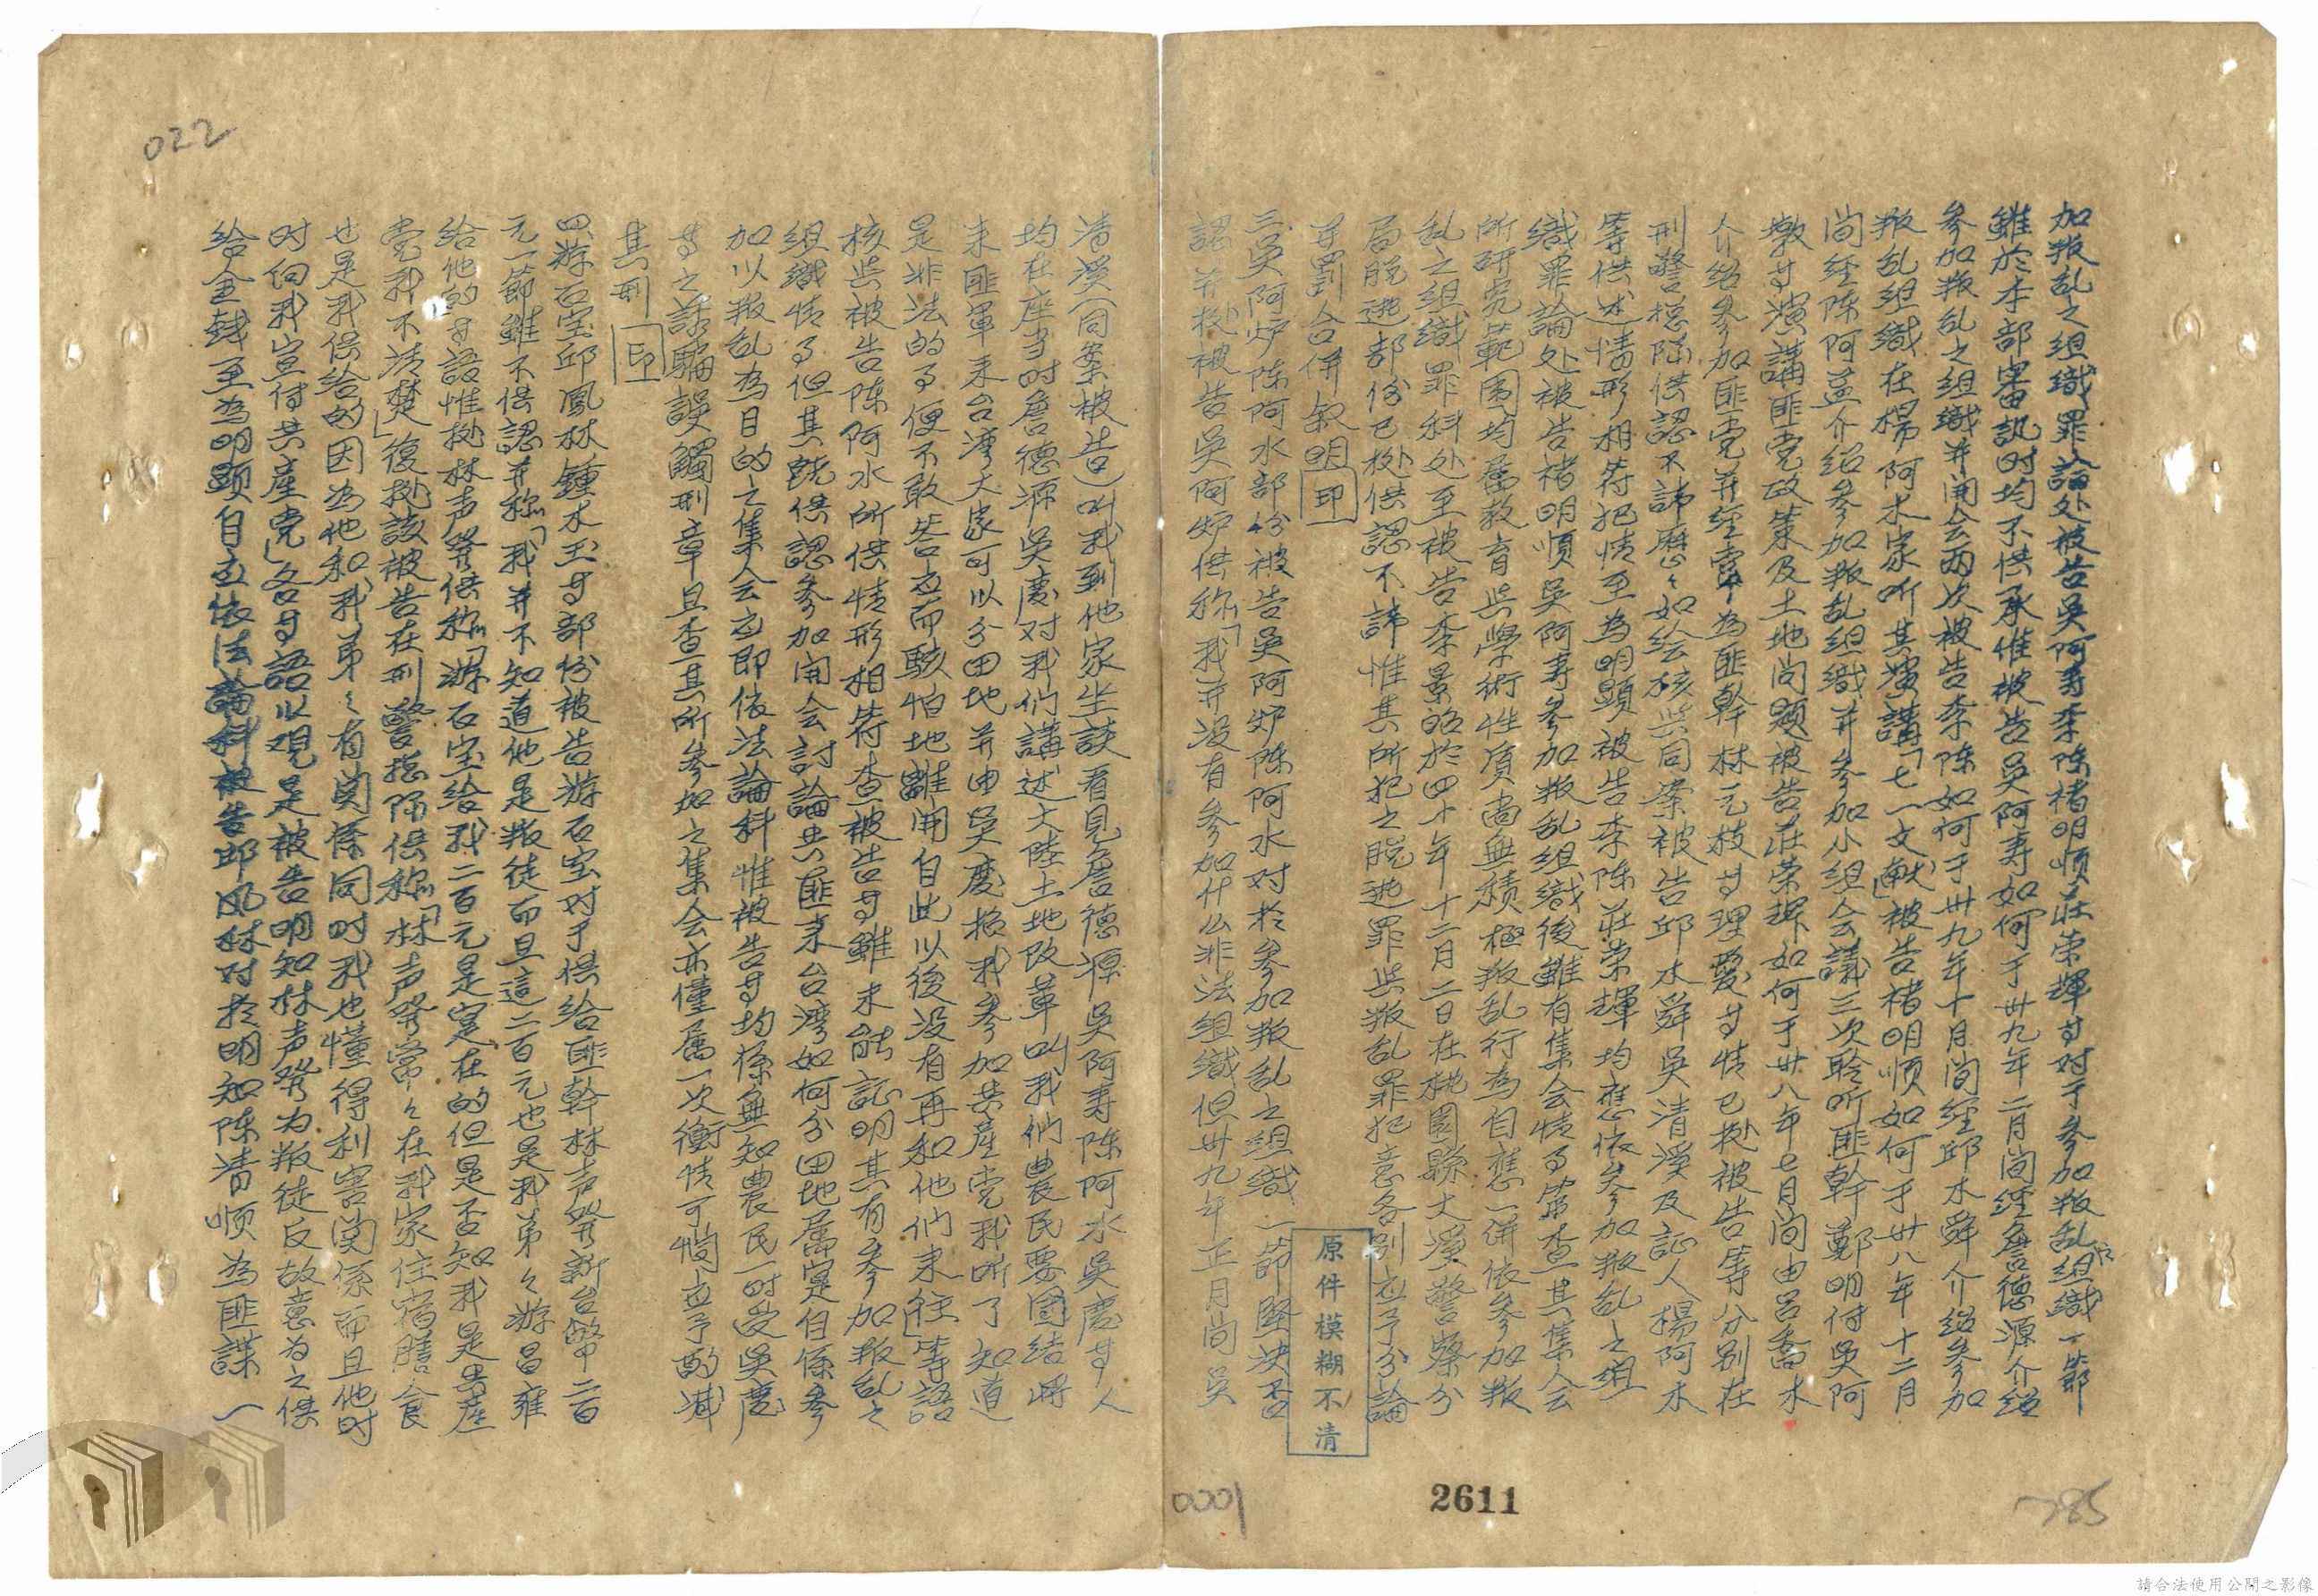 加叛乱之組織罪論处被告吳阿寿李陈褚明順莊荣輝等对于参加叛乱组織一節
雖於本部審訊时均不供承惟被告吳阿寿如何于卅九年二月间經詹德源介紹
参加叛乱之組織并開会兩次被告李陈如何于卅九年十月间經邱木舜介紹参加
叛乱組織在楊阿木家听其演講「七一文献」被告褚明順如何于卅八年十二月
间經陈阿益介紹参加叛乱组織并参加小组会議三次聆听匪幹鄭明付吳阿
墩等演講匪党政策及土地问题被告莊荣輝如何于卅八年七月间由呂喬木
介紹参加匪党并經常为匪幹林元枝等理髮等情已據被告等分別在
刑警總隊供認不諱歷々如绘核与同案被告邱木舜吳清溪及証人楊阿木
等供述情形相符犯情至为明顯被告李陈莊荣輝均應依参加叛乱之組
織罪論处被告褚明順吳阿寿参加叛乱组織後雖有集会情事第查其集会
所研究範围均屬教育与學術性質尚無積極叛乱行為自應一併依参加叛
乱之組織罪科处至被告李景的於四十年十二月二日在桃園縣大溪警察分
局脱逃部份已據供認不諱惟其所犯之脱逃罪与叛乱罪犯意各別应予分論
并罰合併叙明 印
三、吳阿炉陈阿水部份被告吳阿炉陈阿水对於参加叛乱之组織一節堅決否
認并據被告吳阿炉供称「我并没有参加什么非法组織但卅九年正月间吳
原件模糊不清
2611
0001
785
清溪(同案被告)叫我到他家坐談看見詹德源吳阿寿陈阿水吳慶等人
均在座当时詹德源吳慶对我们講述大陸土地改革叫我們農民要團结將
来匪軍来台湾大家可以分田地并由吳慶招我参加共產党我听了知道
是非法的事便不敢答应而駭怕地離開自此以後没有再和他們来往」等語
核与被告陈阿水所供情形相符查被告等雖未能証明其有参加叛乱之
组織情事但其既供認参加開会討論共匪来台湾如何分田地屬实自係参
加以叛乱为目的之集会应即依法論科惟被告等均係無知農民一时受吳慶
等之誘騙誤觸刑章且查其所参加之集会亦僅屬一次衡情可憫应予酌減
其刑 印
四、游石宝邱鳳林鍾木玉等部份被告游石宝对于供给匪幹林声發新台幣二百
元一節雖不供認并称「我并不知道他是叛徒而且這二百元也是我弟々游昌雍
给他的」等語惟據林声發供称「游石宝给我二百元是实在的但是否知我是共產
党我不清楚」復據該被告在刑警總隊供称「林声發常々在我家住宿膳食
也是我供给的因为他和我弟々有関係同时我也懂得利害関係而且他时
时向我宣传共產党」各等語以观是被告明知林声發为叛徒反故意为之供
给金錢至为明顯自应依法論科被告邱风林对於明知陈清顺为匪諜一
022
請合法使用公開之影像